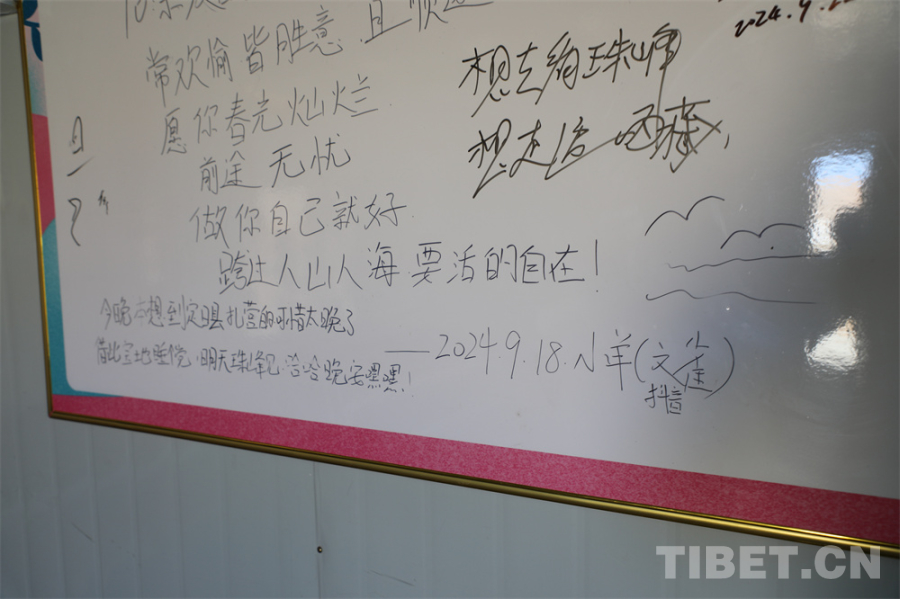 常欢愉皆胜意 且顺遂
愿你春光灿烂
前途无忧
做你自己就好
跨过人山人海 要活的自在！
今晚本想到定日县扎营的可惜太晚了
借此宝地睡觉，明天珠峰见，哈哈晚安嘿嘿！
——2024.9.18.小羊(文签)
抖音
2024.9.2
想去绚珠峰
想走遍西藏，
TIBET.CN